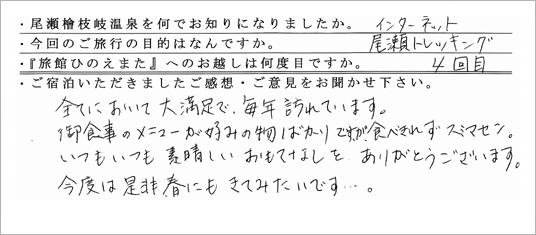 ・尾瀬檜枝岐温泉を何でお知りになりましたか。 インターネット
・今回のご旅行の目的はなんですか。 尾瀬トレッキング
・『旅館ひのえまた』へのお越しは何度目ですか。 4回目
・ご宿泊いただきましたご感想・ご意見をお聞かせ下さい。
全てにおいて大満足で、毎年訪れています。
御食事のメニューが好みの物ばかりですが食べきれずスミマセン。
いつもいつも素晴しいおもてなしを、ありがとうございます。
今度は是非春にもきてみたいです…。